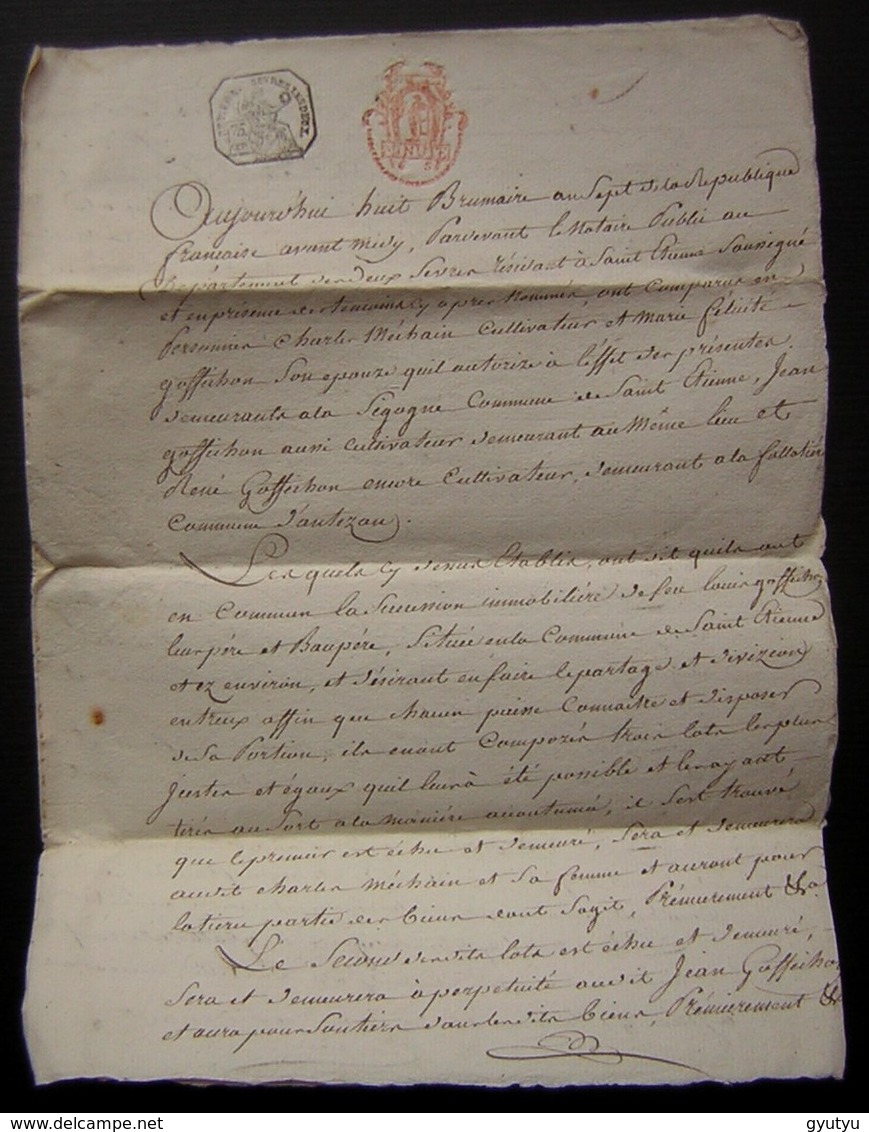 Aujourd'hui huit Brumaire an Sept de la Republique
francaise avant midy, Pardevant le Notaire Public au
Département des deux Sevres résidant à Saint Etienne Soussigné
et en présence des temoins cy apres Nommés, ont Comparus en
Personnes Charles Méchain Cultivateur et Marie felicité
goffechon Son epouze quil autorize à l'éffet des présentes
demeurants a laSégogne Commune de Saint Etienne, Jean
goffechon aussi cultivateur demeurant au Même lieu et
René Goffechon encore Cultivateur, demeurant a la
Commune d'antezan.
Les quels cy dessus Etablis, ont dit quils ont
en Commun la Succession immobiliére de feu louis goffechon
leur pére et Baupére, Située en la Commune de Saint Etienne
et ez environ, et désirant en faire le partage et divizion
entreux affin que chacun puisse Connaitre et disposer
de Sa Portion, ils en ont Composés trois lots les plus
justes et égaux quil leur à été possible et les ayant
tirés au Sort a la maniére accoutumé, il Sest trouvé
que le premier est échu et demeuré, Sera et demeurera
audit charles Méchain et Sa femme et auront pour
la tierce partie des biens dont Sagit, Prémierement &a
Le Second desdits lots est échu et demeuré,
Sera et demeurera à perpetuité audit Jean Goffechon
et aura pour Son tiers dans lesdits biens, Prémierement &a
gyutyu